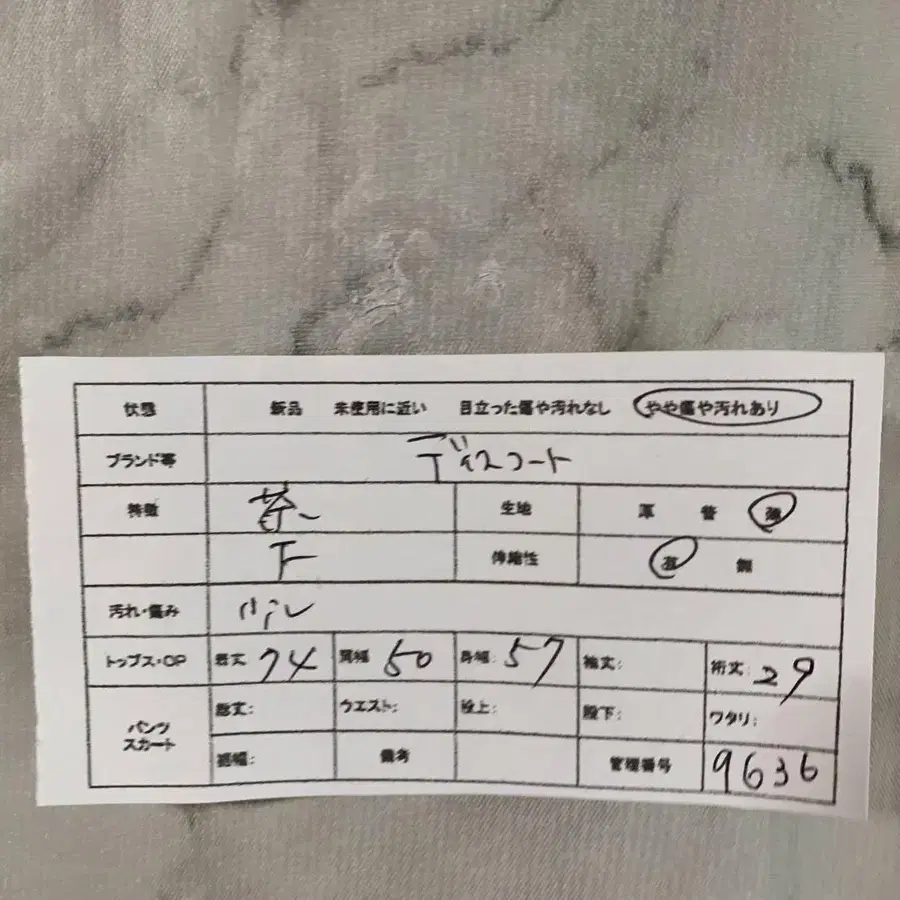 状態 新品 未使用に近い 目立った傷や汚れなし やや傷や汚れあり
ブランド等 ディスコート
特徴 茶 生地 厚 普 薄
下 伸縮性 有 無
汚れ・傷み
トップス・OP 着丈 74 肩幅 50 身幅: 57 袖丈: 裄丈: 29
パンツ スカート 総丈: ウエスト: 股上: 股下: ワタリ:
裾幅: 備考 管理番号 9636